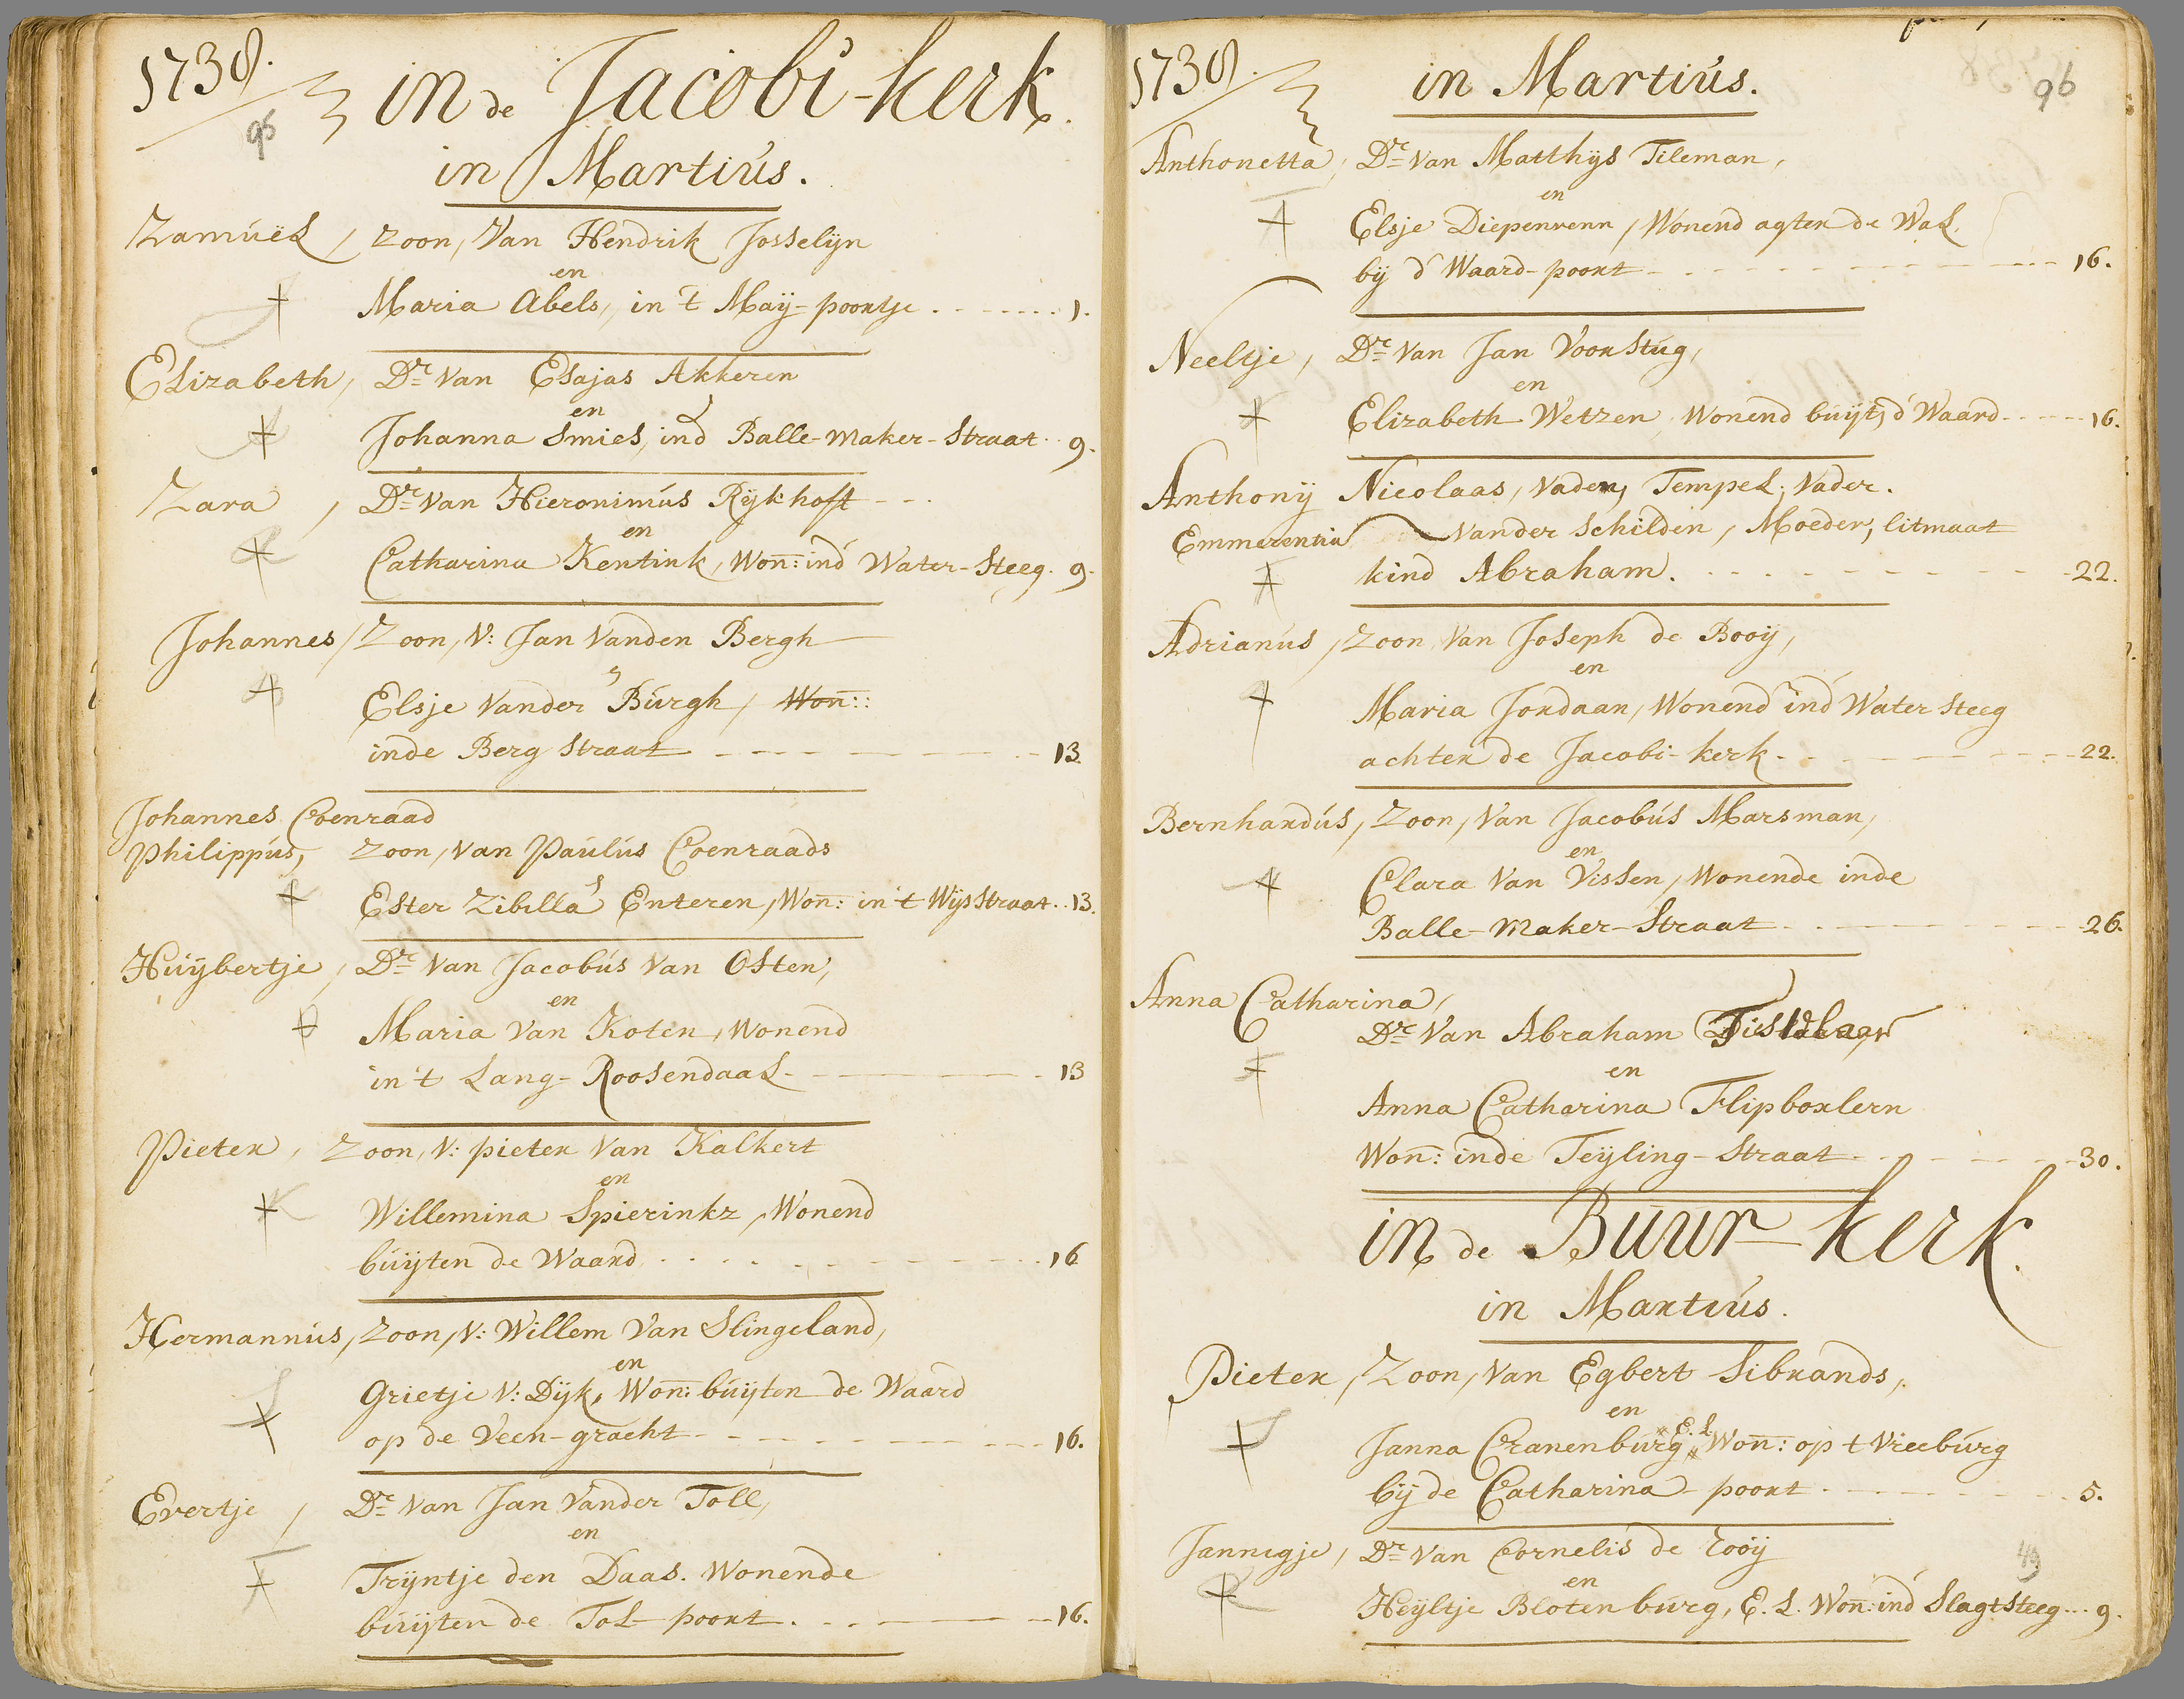 1738.
96
in de Jacobi-kerk.
in Martius.
Zamuël, zoon, Van Hendrik Josselijn
en
Maria Abels, in 't Maij-poortje . - - - - - . 1.
Elizabeth, Dr. Van Esajas Akkeren
en
Johanna Smies, ind Balle-maker-Straat . . 9.
Zara, Dr. Van Hieronimus Rijkhoft - - .
en
Catharina Kentink, Won: ind Water-Steeg. 9.
Johannes, Zoon, V: Jan Vanden Bergh
Elsje Vander Burgh, Won::
inde Berg Straat - - - - - - 13
Johannes Coenraad
Philippus, Zoon, van Paulus Coenraads
Ester Zibilla Enteren, Won: in 't Wijsstraat . . 13.
Huijbertje, Dr. Van Jacobus Van Osten,
en
Maria Van Koten, Wonend
in 't Lang-Roosendaal - - - - - 13
Pieter, Zoon, V: pieter Van Kalkert
en
Willemina Spierinkz, Wonend
buijten de Waard . . . . - - - - - 16
Hermannus, Zoon, V: Willem Van Slingeland,
en
Grietje V: Dijk, Won: buijten de Waard
op de Veen-gracht - - - - - - - 16.
Evertje, Dr. Van Jan Vander Toll,
en
Trijntje den Daas. Wonende
buijten de Tol-poort . - - - - - 16.
1738.
in Martius.
96
Anthonetta, Dr. Van Matthijs Tileman,
en
Elsje Diepenvenn, Wonend agter de Wal
bij d' Waard-poort - - - - - - - 16.
Neeltje, Dr. Van Jan Voorstug,
en
Elizabeth Wetzen, Wonend buijt, d' Waard - - - - 16.
Anthonij Nicolaas, Vader, Tempel, Vader.
Emmerentia Vander Schilden, Moeder, litmaat
kind Abraham. . . - - - - - - 22.
Adrianus, Zoon, Van Joseph de Booij,
en
Maria Jordaan, Wonend ind Water Steeg
achter de Jacobi-kerk - . . - - - - - 22.
Bernhardus, Zoon, Van Jacobus Marsman,
en
Clara Van Vissen, Wonende inde
Balle-maker-Straat - - - - - - - 26.
Anna Catharina,
Dr. Van Abraham
en
Anna Catharina Flipboxlern
Won: inde Teijling-Straat - - - - - - 30.
in de Buur-kerk.
in Martius.
Pieter, Zoon, Van Egbert Sibrands,
en
E. L.
Janna Cranenburg, Won: op t Vreeburg
bij de Catharina-poort . - - - - - - 5.
Jannigje, Dr. Van Cornelis de Rooij
49
en
Heijltje Blotenburg, E. L. Won: ind Slagtsteeg . . . 9.